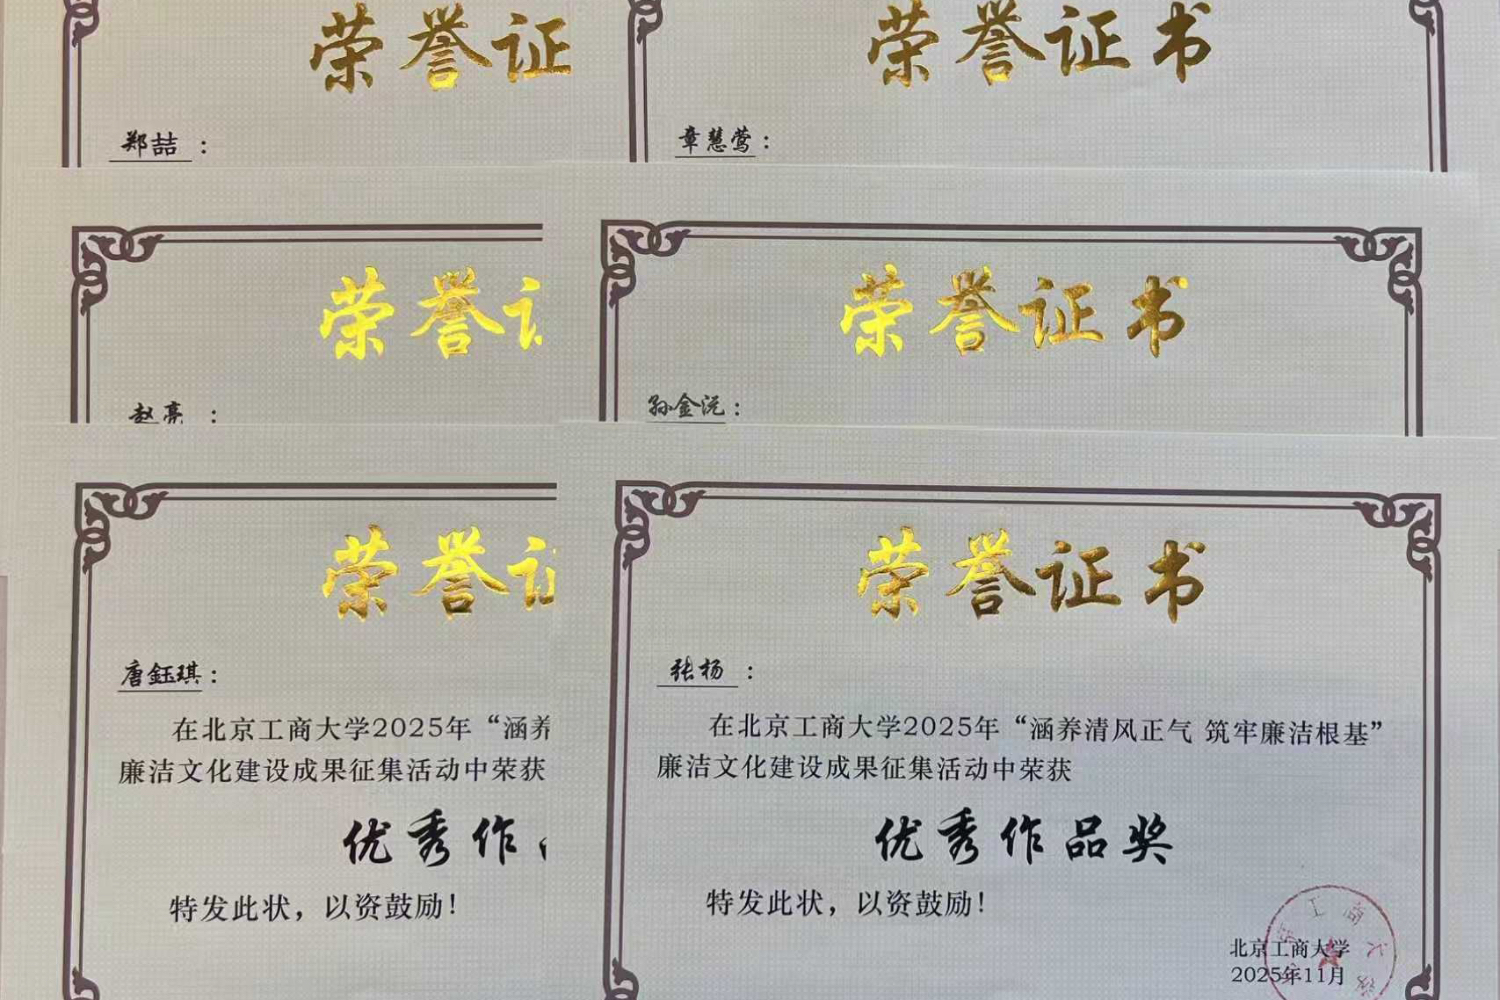 荣誉证
郑喆：
荣誉证书
章慧莺：
荣誉证
赵亮：
荣誉证书
孙金沅：
荣誉证
唐鈺琪：
在北京工商大学2025年“涵养
廉洁文化建设成果征集活动中荣获
优秀作
特发此状，以资鼓励！
荣誉证书
张杨：
在北京工商大学2025年“涵养清风正气 筑牢廉洁根基”
廉洁文化建设成果征集活动中荣获
优秀作品奖
特发此状，以资鼓励！
北京工商大学
2025年11月